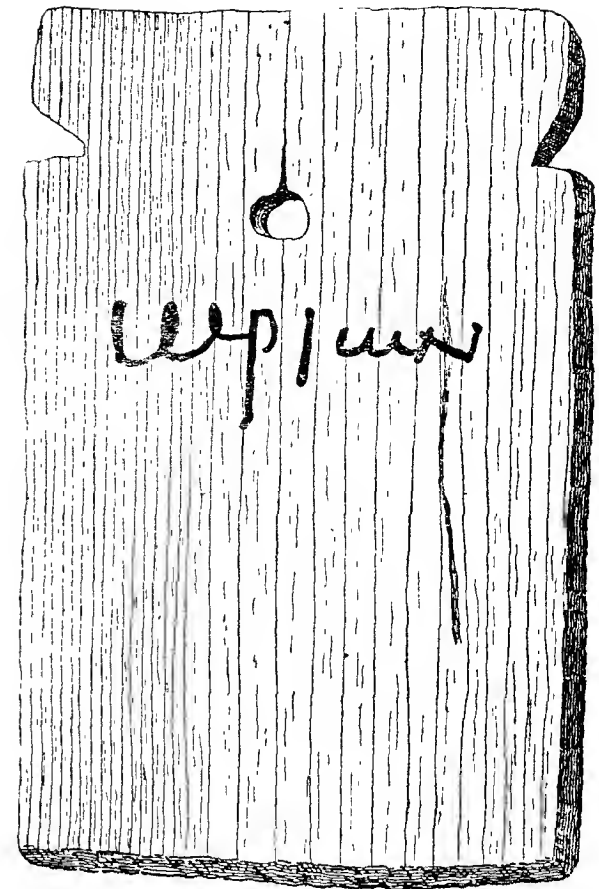 ωριων